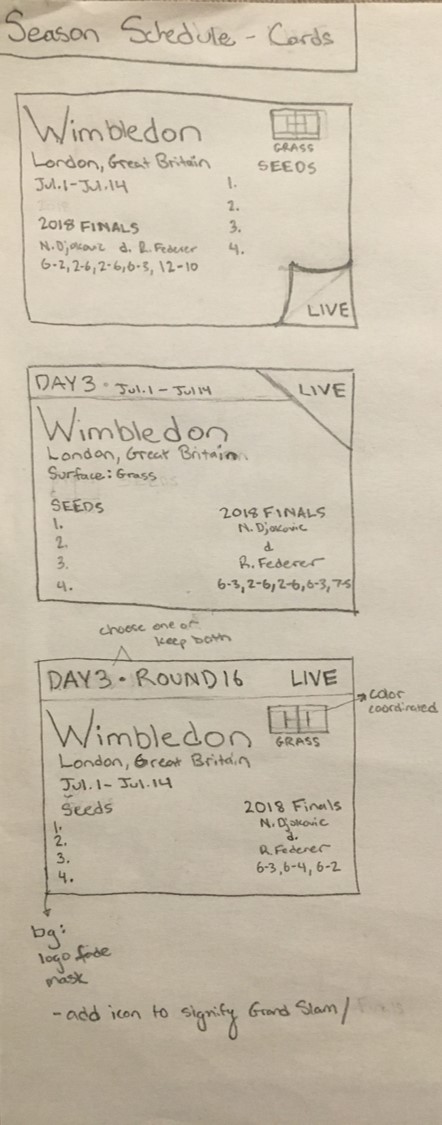 Season Schedule - Cards
Wimbledon
GRASS
London, Great Britain
SEEDS
Jul.1-Jul.14
1.
2.
2018 FINALS
3.
N. Djokovic d. R. Federer
4.
6-2, 2-6, 2-6, 6-3, 12-10
LIVE
DAY 3 · Jul.1 - Jul 14
LIVE
Wimbledon
London, Great Britain
Surface: Grass
SEEDS
2018 FINALS
1.
N. Djokovic
2.
d
3.
R. Federer
4.
6-3, 2-6, 2-6, 6-3, 7-5
choose one or
keep both
DAY 3 · ROUND 16
LIVE
color
coordinated
Wimbledon
GRASS
London, Great Britain
Jul.1 - Jul.14
Seeds
2018 Finals
1.
N. Djokovic
2.
d.
3.
R. Federer
4.
6-3, 6-4, 6-2
bg:
logo fade
mask
- add icon to signify Grand Slam /